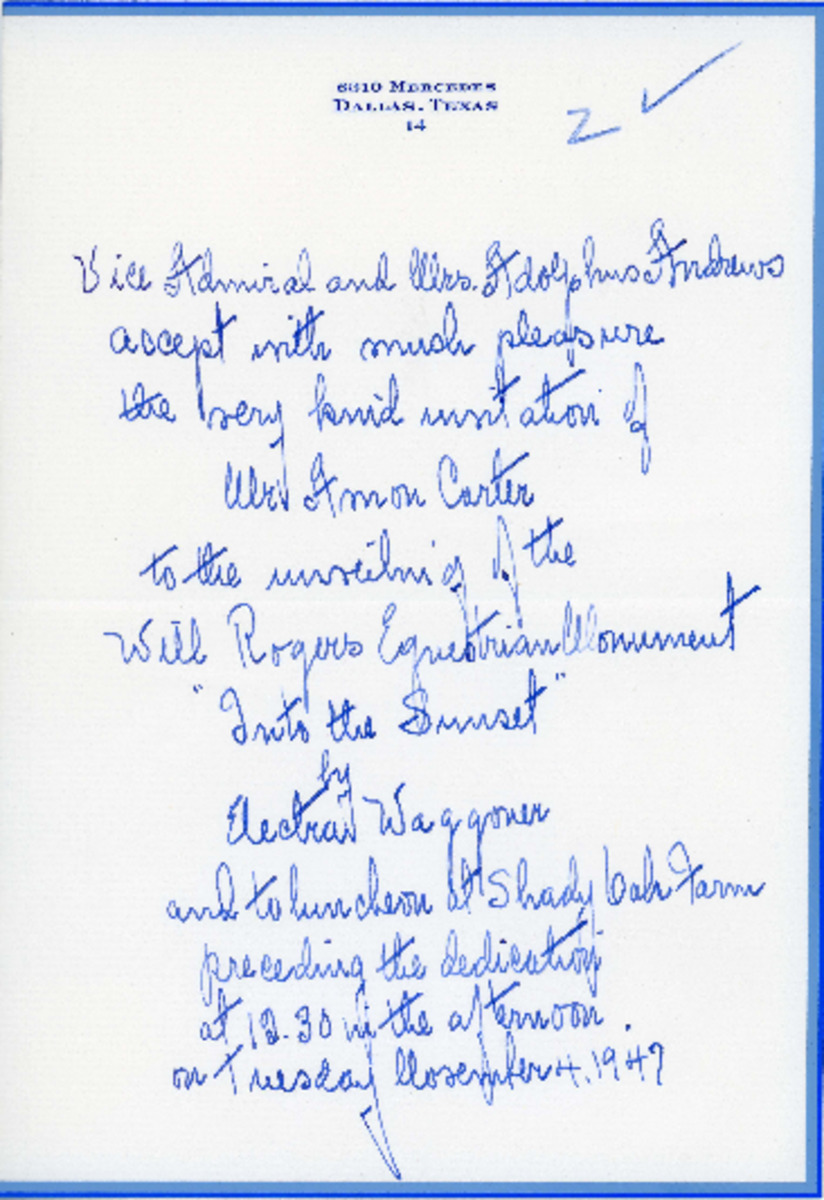 6310 MERCEDES
DALLAS, TEXAS
14
2 ✓
Vice Admiral and Mrs. Adolphus Andrews
accept with much pleasure
the very kind invitation of
Mr Amon Carter
to the unveiling of the
Will Rogers Equestrian Monument
"Into the Sunset"
by
Electra Waggoner
and to luncheon at Shady Oak Farm
preceding the dedication
at 12.30 in the afternoon.
on Tuesday November 4. 1947